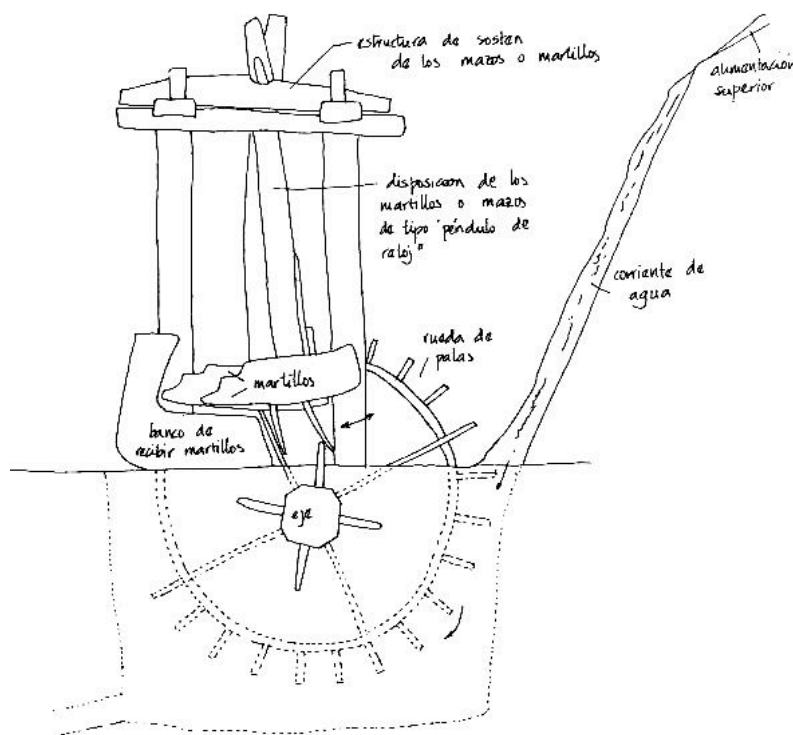 estructura de sosten
de los mazos o martillos
alimentación
superior
disposicion de los
martillos o mazos
de tipo "péndulo de
reloj"
corriente de
agua
rueda de
palas
martillos
banco de
recibir martillos
eje